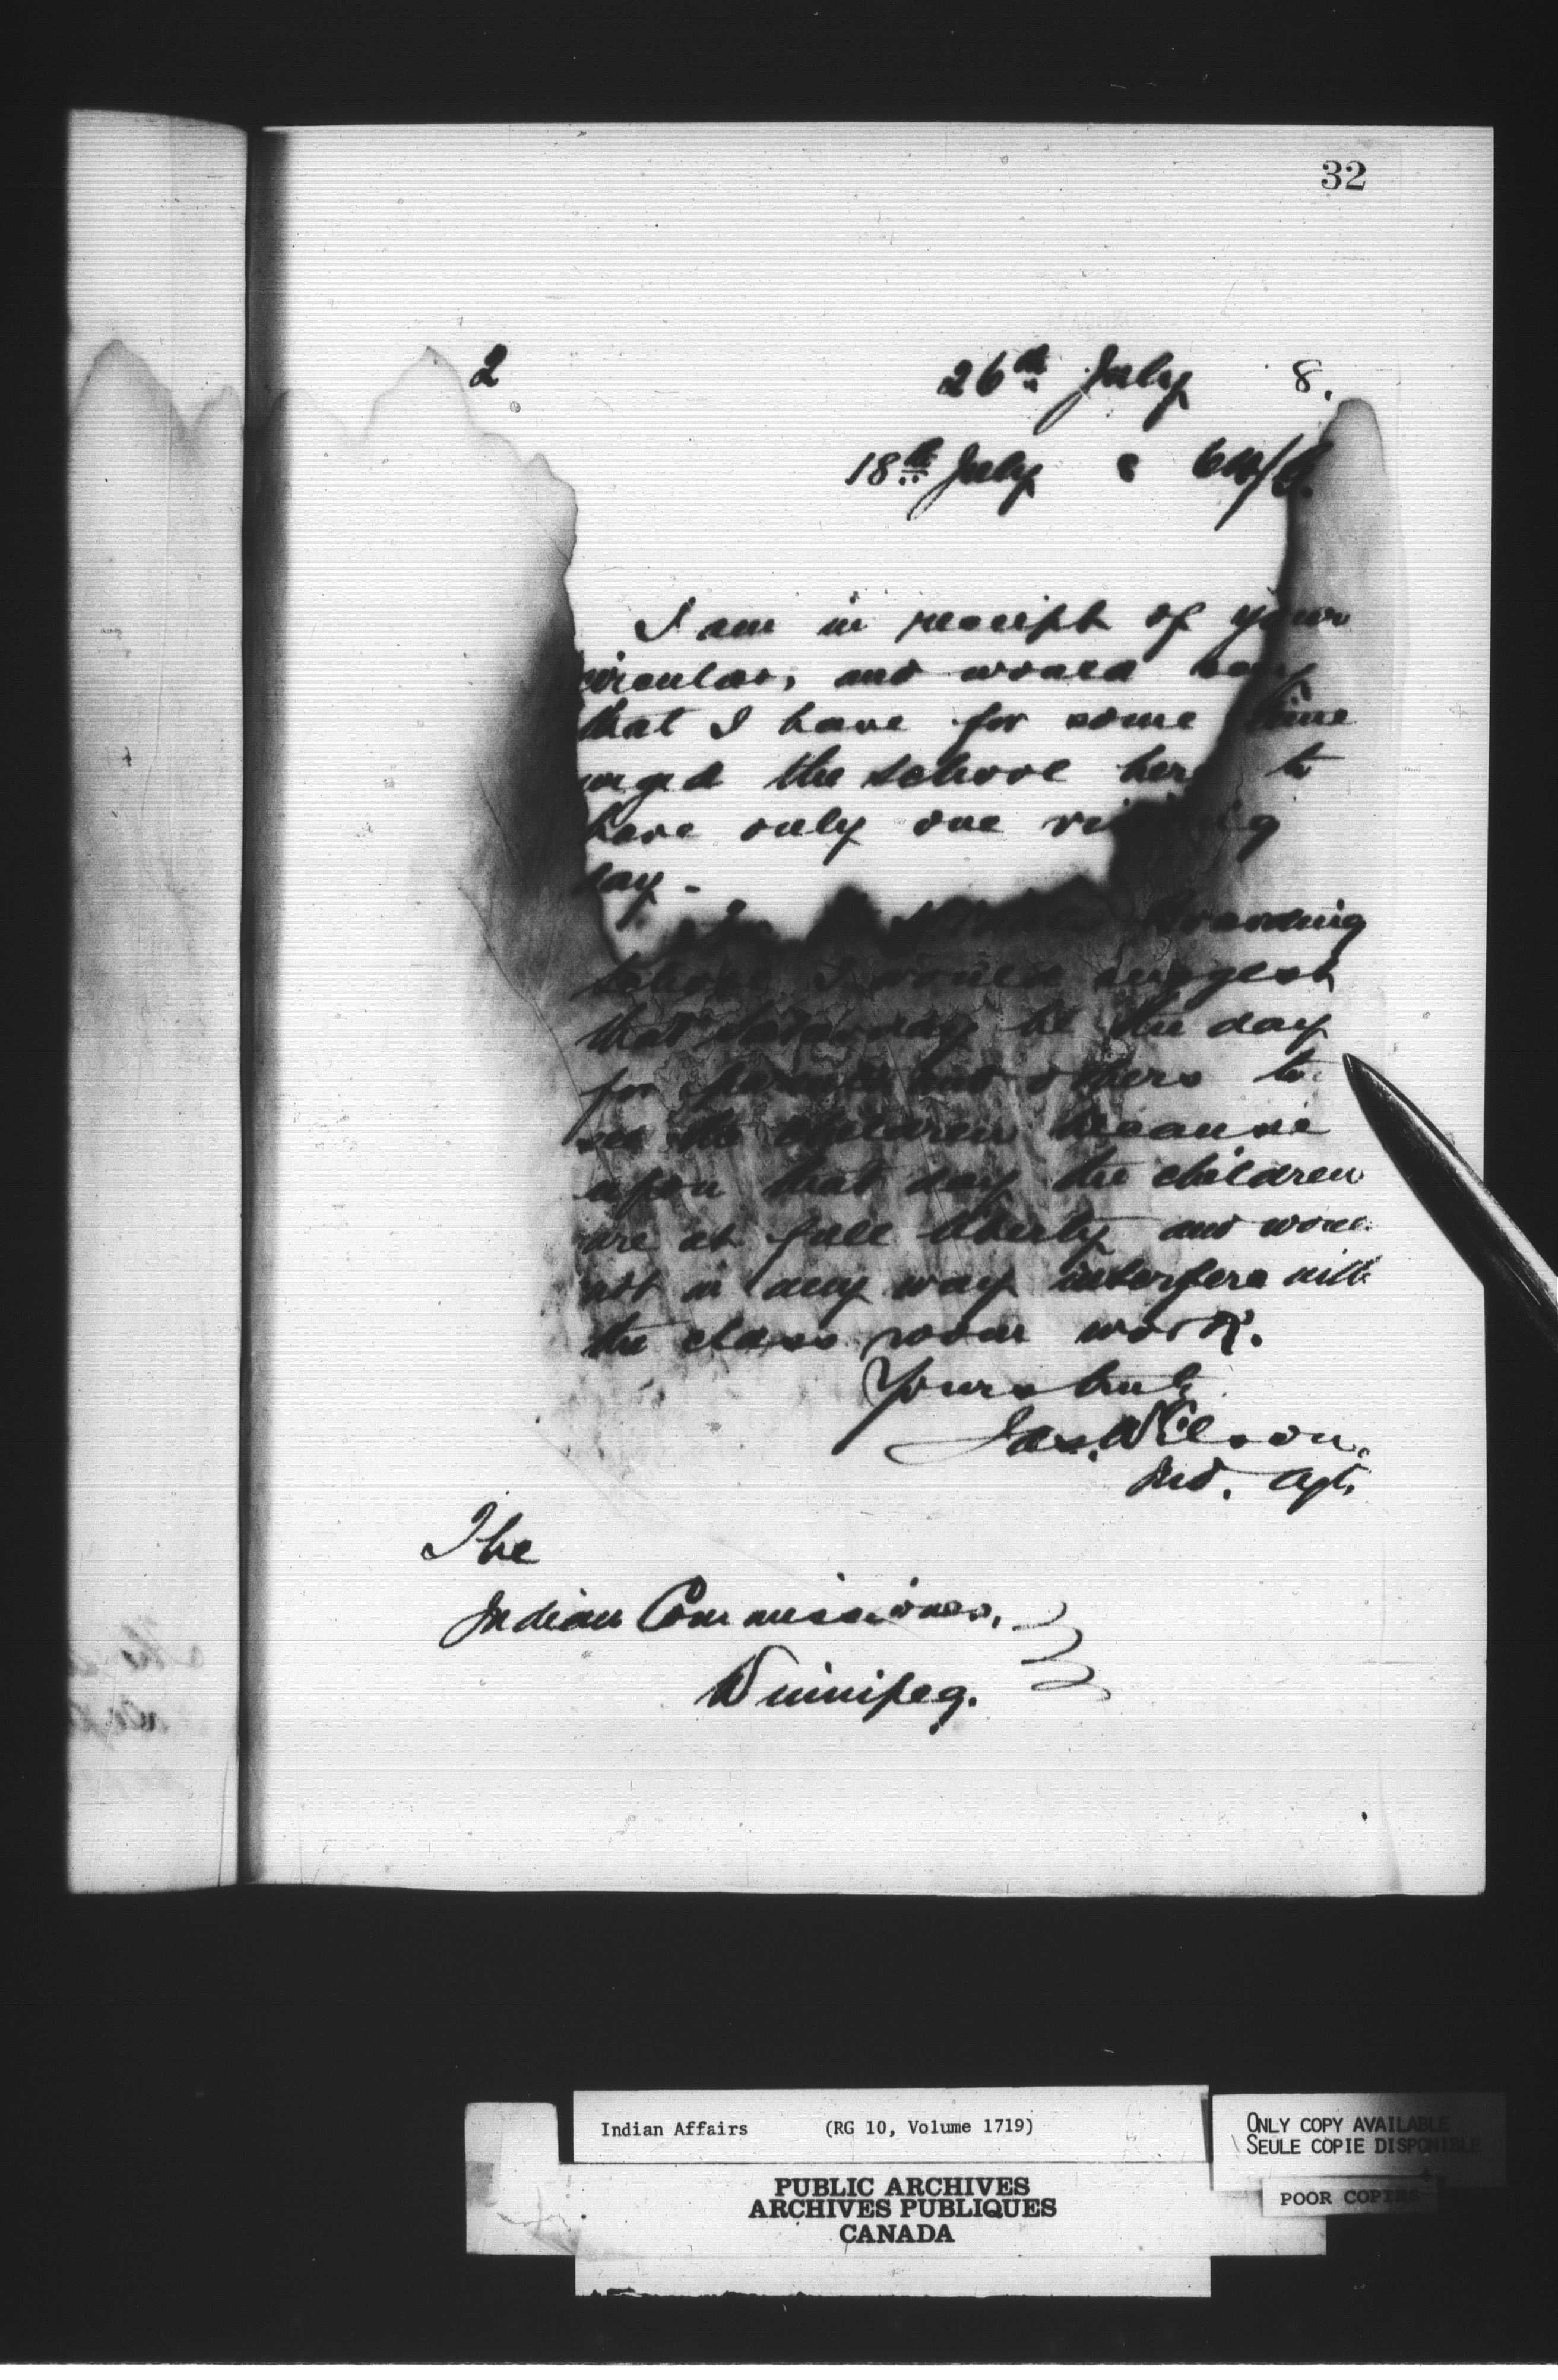 32
2 26th July 8.
18th July 8
I am in receipt of your
circular, and would say
that I have for some time
urged the school here to
have only one visiting
day.
Boarding
school I would suggest
that Saturday be the day
for parents and others to
see the children because
upon that day the children
are at full liberty and
not in any way interfere with
the class room work.
Yours truly
Jas. Wilson.
Ind. Agt.
The
Indian Commissioner,
Winnipeg.
Indian Affairs (RG 10, Volume 1719)
PUBLIC ARCHIVES
ARCHIVES PUBLIQUES
CANADA
ONLY COPY AVAILABLE
SEULE COPIE DISPONIBLE
POOR COPIES